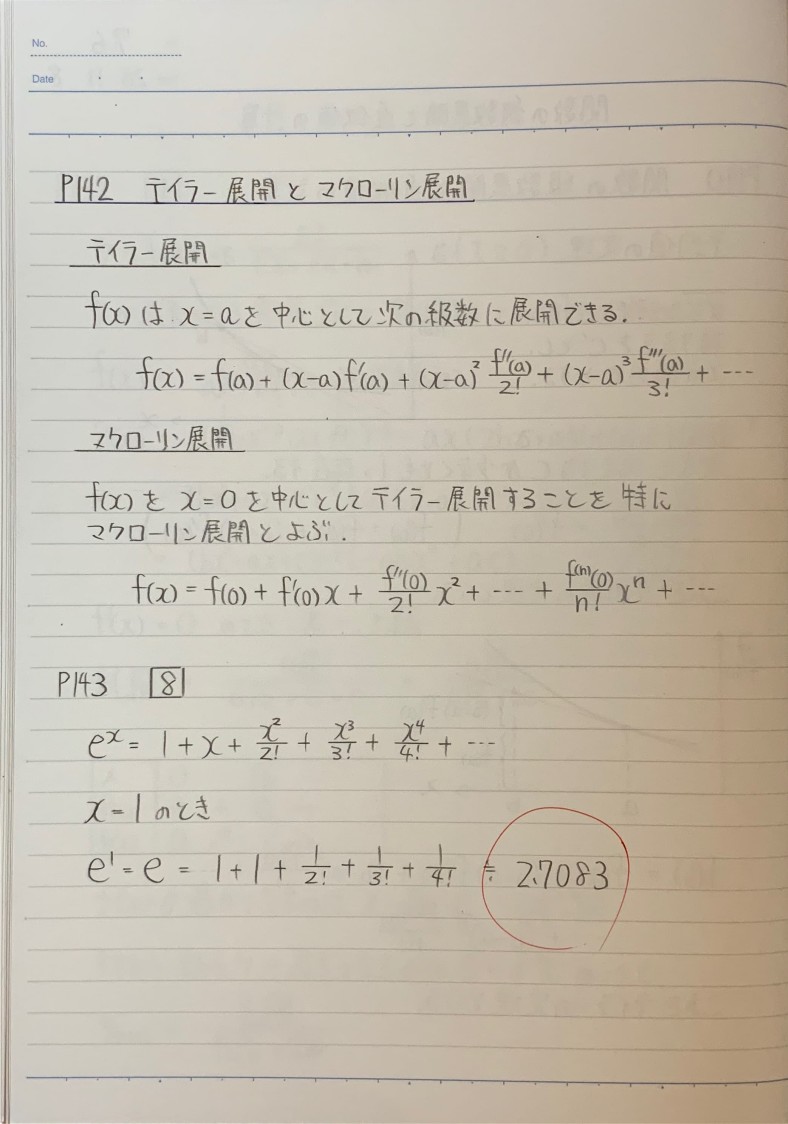 No.
Date
P142 テイラー展開とマクローリン展開
テイラー展開
f(x)は x=aを中心として次の級数に展開できる.
f(x) = f(a) + (x-a)f'(a) + (x-a)² f''(a)/2! + (x-a)³ f'''(a)/3! + ---
マクローリン展開
f(x)を x=0を中心としてテイラー展開することを特に
マクローリン展開とよぶ.
f(x) = f(0) + f'(0)x + f''(0)/2! x² + --- + f⁽ⁿ⁾(0)/n! xⁿ + ---
P143 8
eˣ = 1 + x + x²/2! + x³/3! + x⁴/4! + ---
x=1のとき
e¹ = e = 1+1+ 1/2! + 1/3! + 1/4! ≒ 2.7083